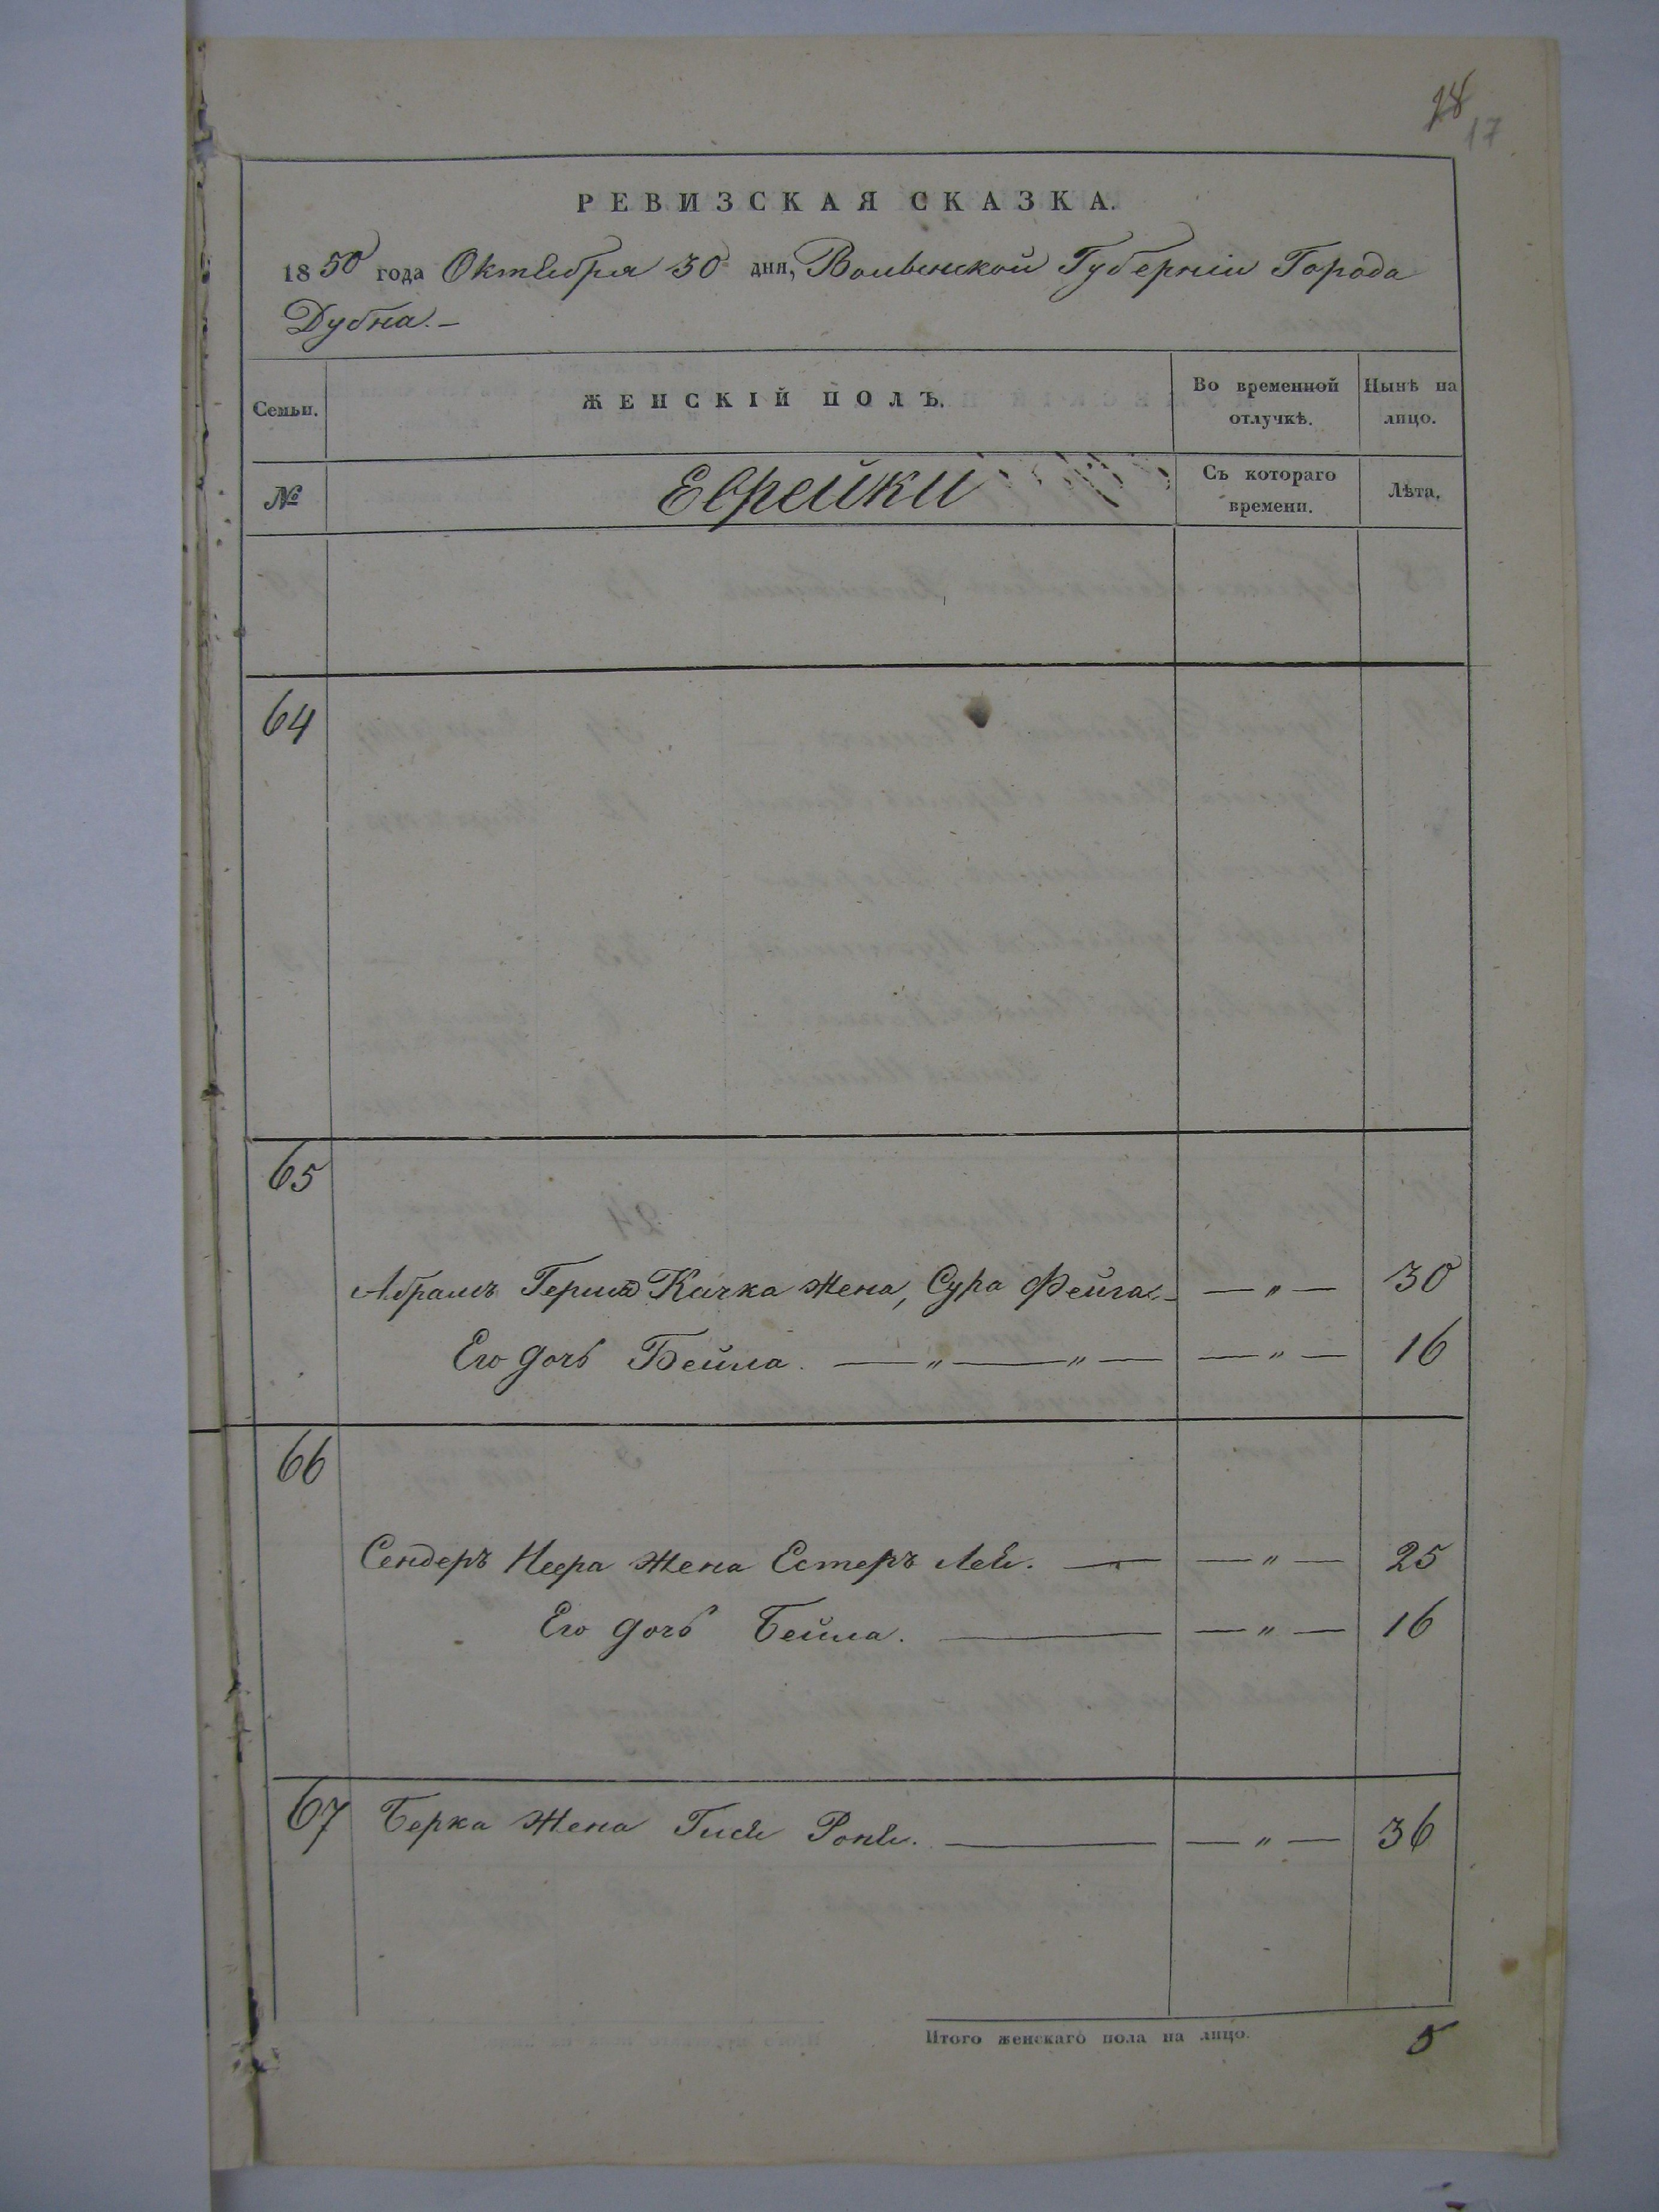 28
17
РЕВИЗСКАЯ СКАЗКА.
1850 года Октября 30 дня, Волынской Губерніи Города
Дубна. –
Семьи. ЖЕНСКІЙ ПОЛЪ. Во временной отлучкѣ. Нынѣ на лицо.
№ Еврейки Съ котораго времени. Лѣта.
64
65
Абрамъ Герша Качка жена, Сура Фейга – — „ — 30
Его дочь Бейла. — „ — „ — — „ — 16
66
Сендеръ жена Естеръ Лея. — — „ — 25
Его дочь Бейла. — — „ — 16
67 Берка жена Гися Роня. — — „ — 36
Итого женскаго пола на лицо. 5